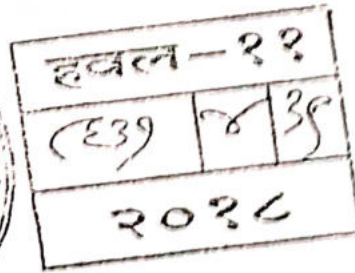 हवल-११
८६३१ ४ ३९
२०१८